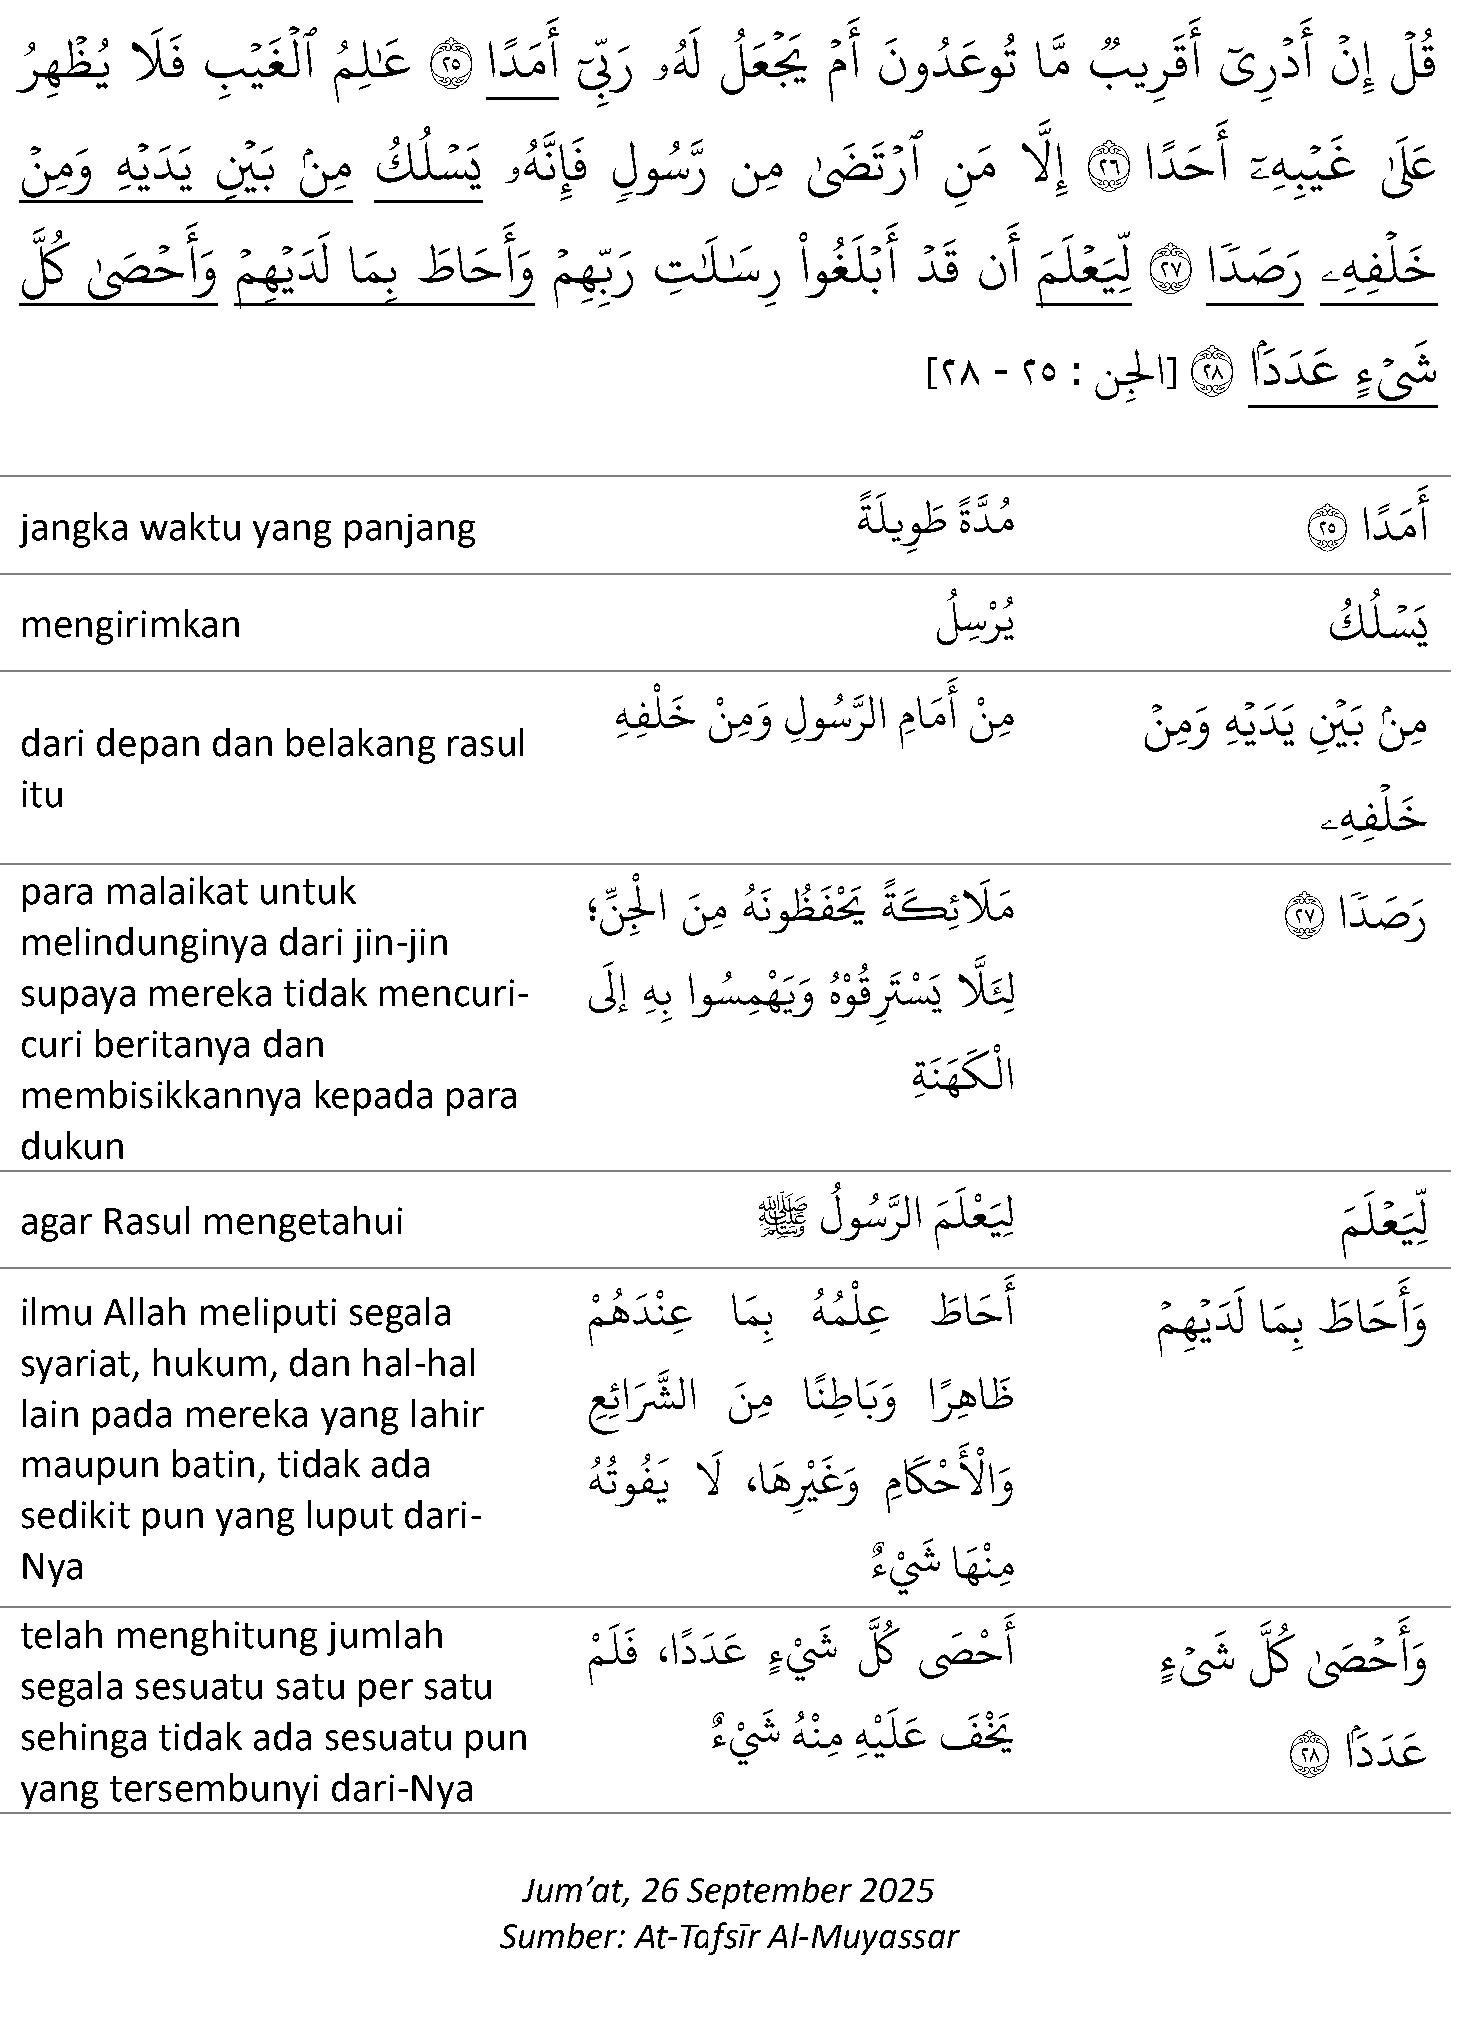 قُلۡ إِنۡ أَدۡرِيٓ أَقَرِيبٞ مَّا تُوعَدُونَ أَمۡ يَجۡعَلُ لَهُۥ رَبِّيٓ أَمَدًا ٢٥ عَٰلِمُ ٱلۡغَيۡبِ فَلَا يُظۡهِرُ
عَلَىٰ غَيۡبِهِۦٓ أَحَدًا ٢٦ إِلَّا مَنِ ٱرۡتَضَىٰ مِن رَّسُولٖ فَإِنَّهُۥ يَسۡلُكُ مِنۢ بَيۡنِ يَدَيۡهِ وَمِنۡ
خَلۡفِهِۦ رَصَدٗا ٢٧ لِّيَعۡلَمَ أَن قَدۡ أَبۡلَغُواْ رِسَٰلَٰتِ رَبِّهِمۡ وَأَحَاطَ بِمَا لَدَيۡهِمۡ وَأَحۡصَىٰ كُلَّ
شَيۡءٍ عَدَدَۢا ٢٨ [الجِن : ٢٥ - ٢٨]
أَمَدًا ٢٥
مُدَّةً طَوِيلَةً
jangka waktu yang panjang
يَسۡلُكُ
يُرْسِلُ
mengirimkan
مِنۢ بَيۡنِ يَدَيۡهِ وَمِنۡ
خَلۡفِهِۦ
مِنْ أَمَامِ الرَّسُولِ وَمِنْ خَلْفِهِ
dari depan dan belakang rasul
itu
رَصَدٗا ٢٧
مَلَائِكَةً يَحْفَظُونَهُ مِنَ الْجِنِّ؛
لِئَلَّا يَسْتَرِقُوْهُ وَيَهْمِسُوا بِهِ إِلَى
الْكَهَنَةِ
para malaikat untuk
melindunginya dari jin-jin
supaya mereka tidak mencuri-
curi beritanya dan
membisikkannya kepada para
dukun
لِّيَعۡلَمَ
لِيَعْلَمَ الرَّسُولُ ﷺ
agar Rasul mengetahui
وَأَحَاطَ بِمَا لَدَيۡهِمۡ
أَحَاطَ عِلْمُهُ بِمَا عِنْدَهُمْ
ظَاهِرًا وَبَاطِنًا مِنَ الشَّرَائِعِ
وَالْأَحْكَامِ وَغَيْرِهَا، لَا يَفُوتُهُ
مِنْهَا شَيْءٌ
ilmu Allah meliputi segala
syariat, hukum, dan hal-hal
lain pada mereka yang lahir
maupun batin, tidak ada
sedikit pun yang luput dari-
Nya
وَأَحۡصَىٰ كُلَّ شَيۡءٍ
عَدَدَۢا ٢٨
أَحْصَى كُلَّ شَيْءٍ عَدَدًا، فَلَمْ
يَخْفَ عَلَيْهِ مِنْهُ شَيْءٌ
telah menghitung jumlah
segala sesuatu satu per satu
sehinga tidak ada sesuatu pun
yang tersembunyi dari-Nya
Jum’at, 26 September 2025
Sumber: At-Tafsīr Al-Muyassar